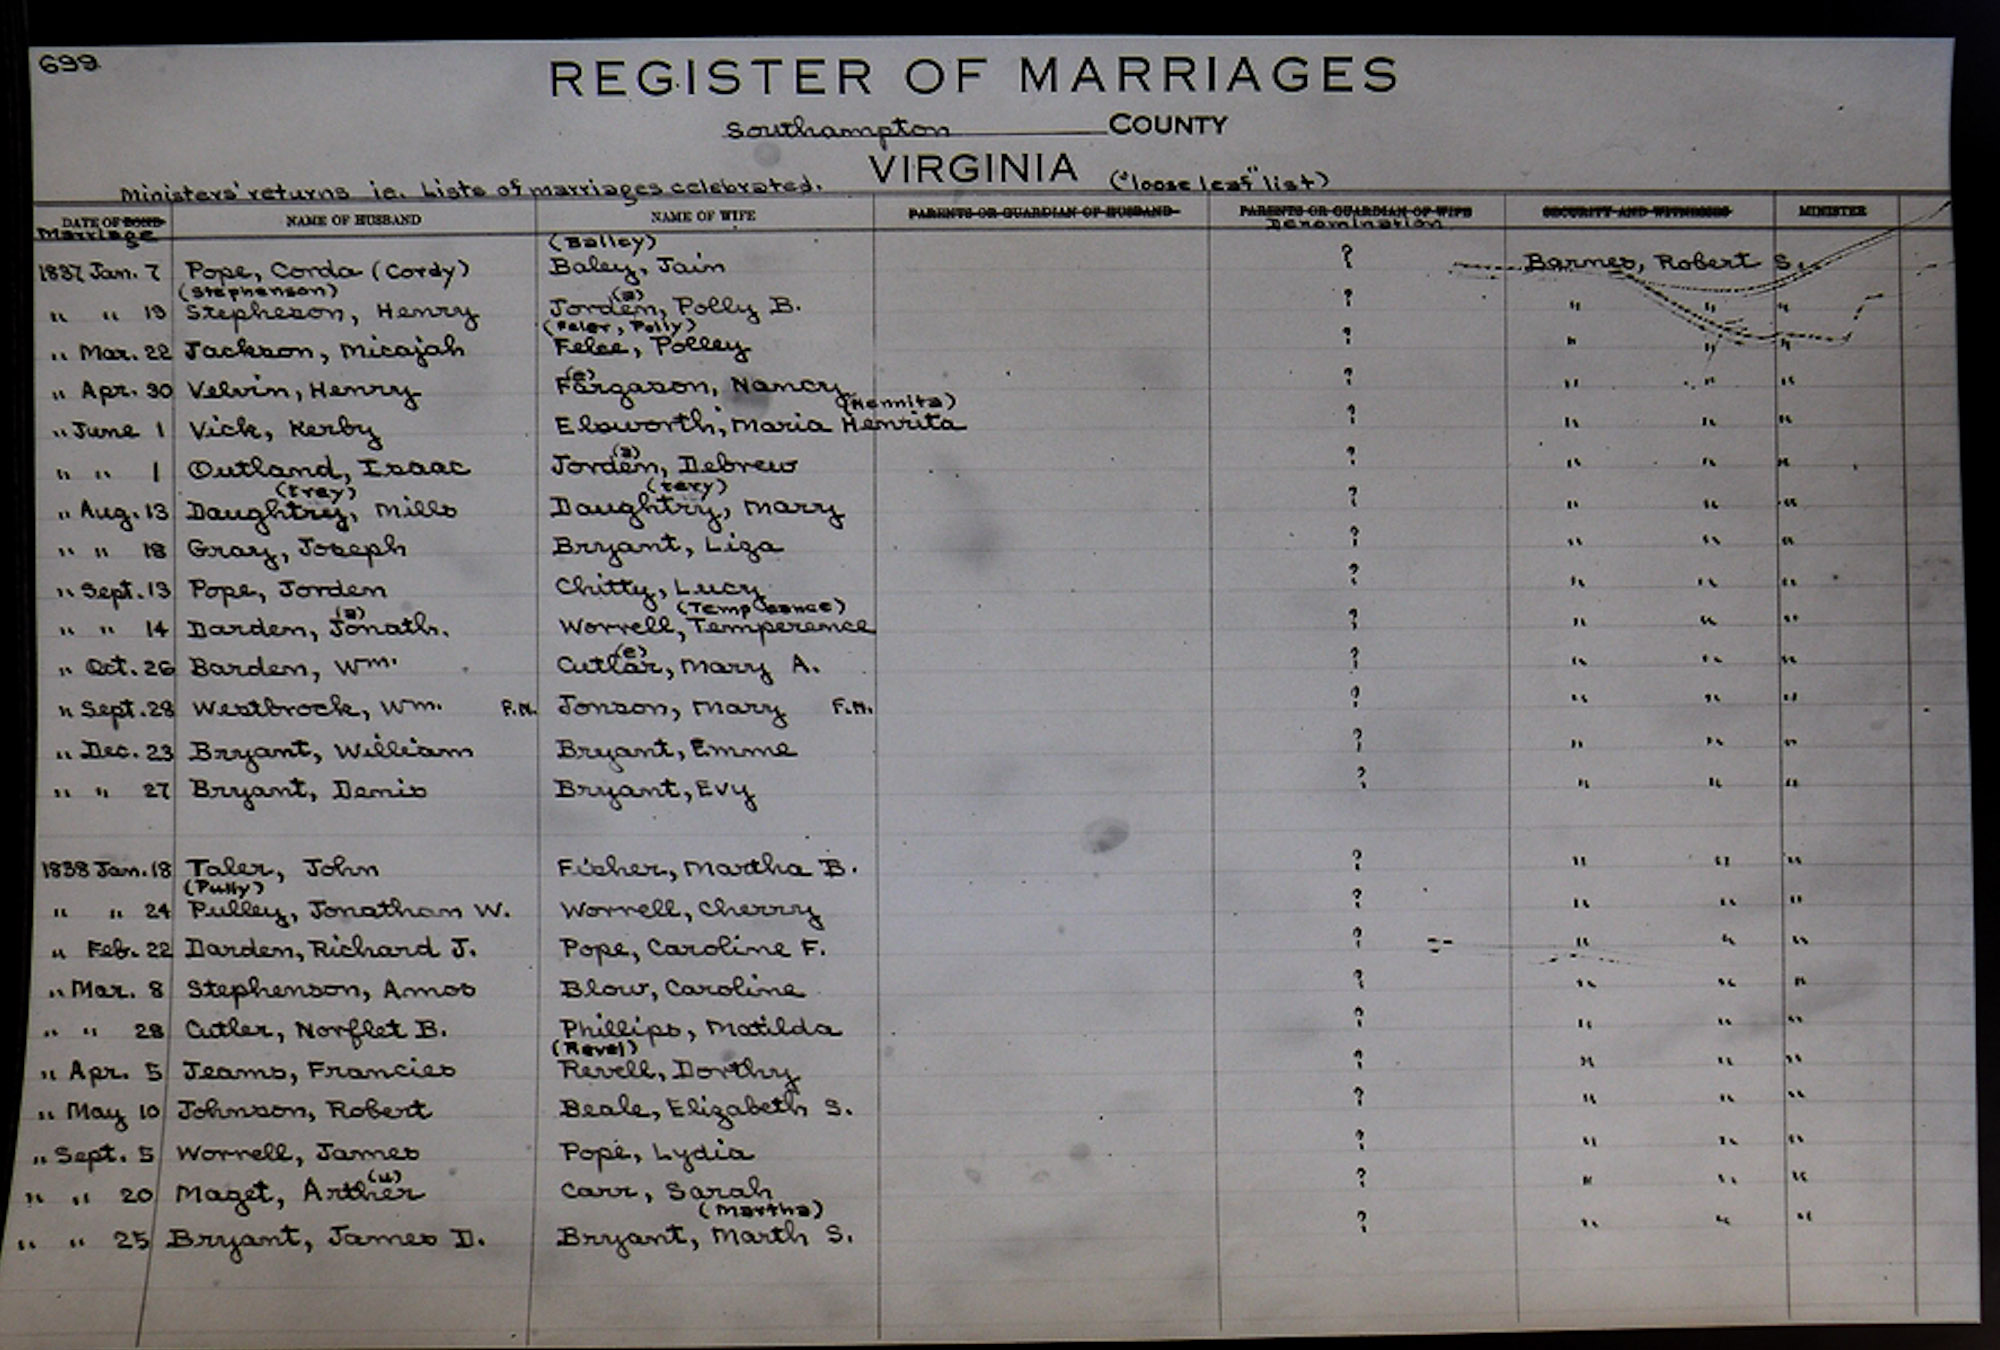 699
REGISTER OF MARRIAGES
Southampton COUNTY
VIRGINIA ("loose leaf" list)
Ministers' returns ie. Lists of marriages celebrated.
DATE OF BOND NAME OF HUSBAND NAME OF WIFE PARENTS OR GUARDIAN OF HUSBAND PARENTS OR GUARDIAN OF WIFE SECURITY AND WITNESSES MINISTER
Marriage Denomination
(Bailey)
1837 Jan. 7 Pope, Corda (Cordy) Baley, Jain ? Barnes, Robert S.
(Stephenson) (a)
" " 19 Stepheson, Henry Jorden, Polly B. ? " " "
(Feler, Polly)
" Mar. 22 Jackson, Micajah Felce, Polley ? " " "
(e)
" Apr. 30 Velvin, Henry Fargason, Nancy ? " " "
(Hennita)
" June 1 Vick, Kerby Elsworth, Maria Henrita ? " " "
(a)
" " 1 Outland, Isaac Jorden, Debrew ? " " "
(trey) (tery)
" Aug. 13 Daughtrey, Mills Daughtry, Mary ? " " "
" " 18 Gray, Joseph Bryant, Liza ? " " "
" Sept. 13 Pope, Jorden Chitty, Lucy ? " " "
(a) (Temperance)
" " 14 Darden, Jonath. Worrell, Temperence ? " " "
(e)
" Oct. 26 Barden, Wm. Cutlar, Mary A. ? " " "
" Sept. 28 Westbrock, Wm. F.N. Jonson, Mary F.N. ? " " "
" Dec. 23 Bryant, William Bryant, Emme ? " " "
" " 27 Bryant, Denis Bryant, Evy ? " " "
1838 Jan. 18 Taler, John Fisher, Martha B. ? " " "
(Pully)
" " 24 Pulley, Jonathan W. Worrell, Cherry ? " " "
" Feb. 22 Darden, Richard J. Pope, Caroline F. ? " " "
" Mar. 8 Stephenson, Amos Blow, Caroline ? " " "
" " 28 Cutler, Norflet B. Phillips, Matilda ? " " "
(Revel)
" Apr. 5 Jeams, Francies Revell, Dorthy ? " " "
" May 10 Johnson, Robert Beale, Elizabeth S. ? " " "
" Sept. 5 Worrell, James Pope, Lydia ? " " "
(u)
" " 20 Maget, Arther Carr, Sarah ? " " "
(Martha)
" " 25 Bryant, James D. Bryant, Marth S. ? " " "